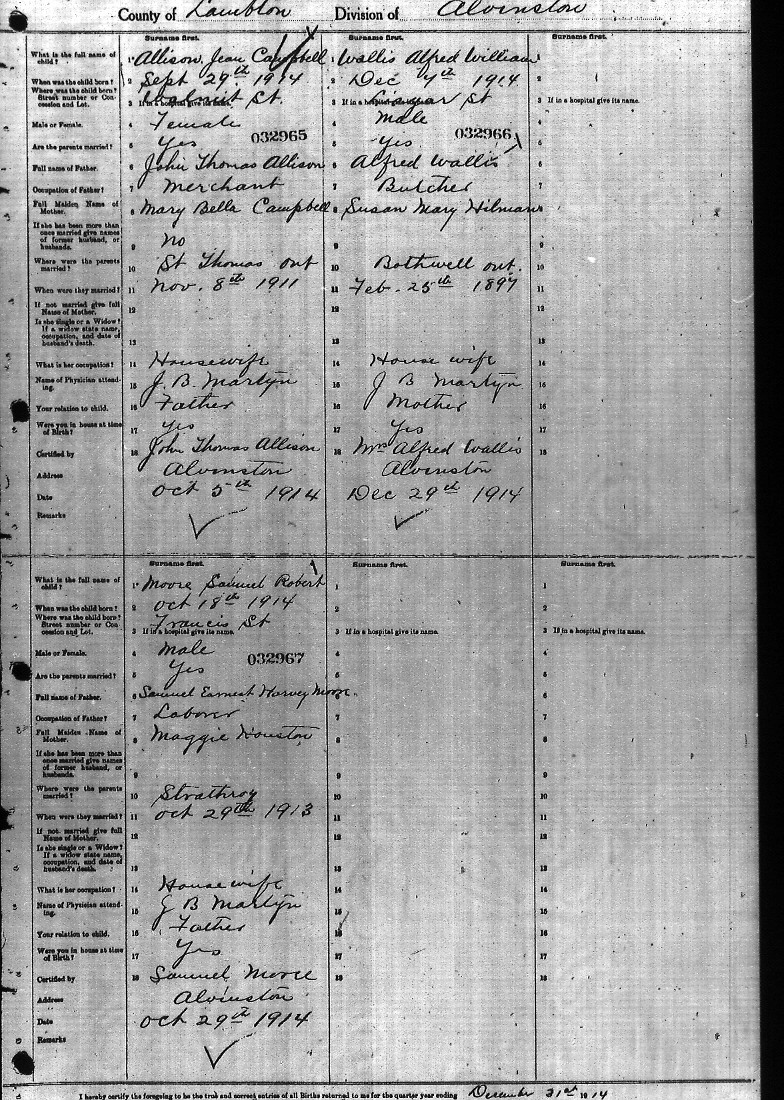 County of Lambton Division of Alvinston
Surname first. Surname first. Surname first.
What is the full name of child? 1 Allison, Jean Campbell 1 Wallis Alfred William 1
When was the child born? 2 Sept 29th 1914 2 Dec 7th 1914 2
Where was the child born? Street number or Concession and Lot. 3 If in a hospital give its name. St. 3 If in a hospital give its name. St 3 If in a hospital give its name.
Male or Female. 4 Female 4 Male 4
032965 032966
Are the parents married? 5 Yes 5 Yes 5
Full name of Father. 6 John Thomas Allison 6 Alfred Wallis 6
Occupation of Father? 7 Merchant 7 Butcher 7
Full Maiden Name of Mother. 8 Mary Bella Campbell 8 Susan Mary Hilman 8
If she has been more than once married give names of former husband, or husbands. 9 No 9 9
Where were the parents married? 10 St Thomas ont 10 Bothwell ont. 10
When were they married? 11 Nov. 8th 1911 11 Feb. 25th 1897 11
If not married give full Name of Mother. 12 12 12
Is she single or a Widow? If a widow state name, occupation, and date of husband's death. 13 13 13
What is her occupation? 14 Housewife 14 House wife 14
Name of Physician attending. 15 J. B. Martyn 15 J B Martyn 15
Your relation to child. 16 Father 16 Mother 16
Were you in house at time of Birth? 17 Yes 17 Yes 17
Certified by 18 John Thomas Allison 18 Mrs Alfred Wallis 18
Address Alvinston Alvinston
Date Oct 5th 1914 Dec 29th 1914
Remarks
Surname first. Surname first. Surname first.
What is the full name of child? 1 Moore Samuel Robert 1 1
When was the child born? 2 Oct 18th 1914 2 2
Where was the child born? Street number or Concession and Lot. Francis St
3 If in a hospital give its name. 3 If in a hospital give its name. 3 If in a hospital give its name.
Male or Female. 4 Male 4 4
032967
Are the parents married? 5 Yes 5 5
Full name of Father. 6 Samuel Earnest Harvey Moore. 6 6
Occupation of Father? 7 Laborer 7 7
Full Maiden Name of Mother. 8 Maggie Houston 8 8
If she has been more than once married give names of former husband, or husbands. 9 9 9
Where were the parents married? 10 Strathroy 10 10
When were they married? 11 Oct 29th 1913 11 11
If not married give full Name of Mother. 12 12 12
Is she single or a Widow? If a widow state name, occupation, and date of husband's death. 13 13 13
What is her occupation? 14 Housewife 14 14
Name of Physician attending. 15 J B Martyn 15 15
Your relation to child. 16 Father 16 16
Were you in house at time of Birth? 17 Yes 17 17
Certified by 18 Samuel Moore 18 18
Address Alvinston
Date Oct 29th 1914
Remarks
I hereby certify the foregoing to be the true and correct entries of all Births returned to me for the quarter year ending December 31st 1914